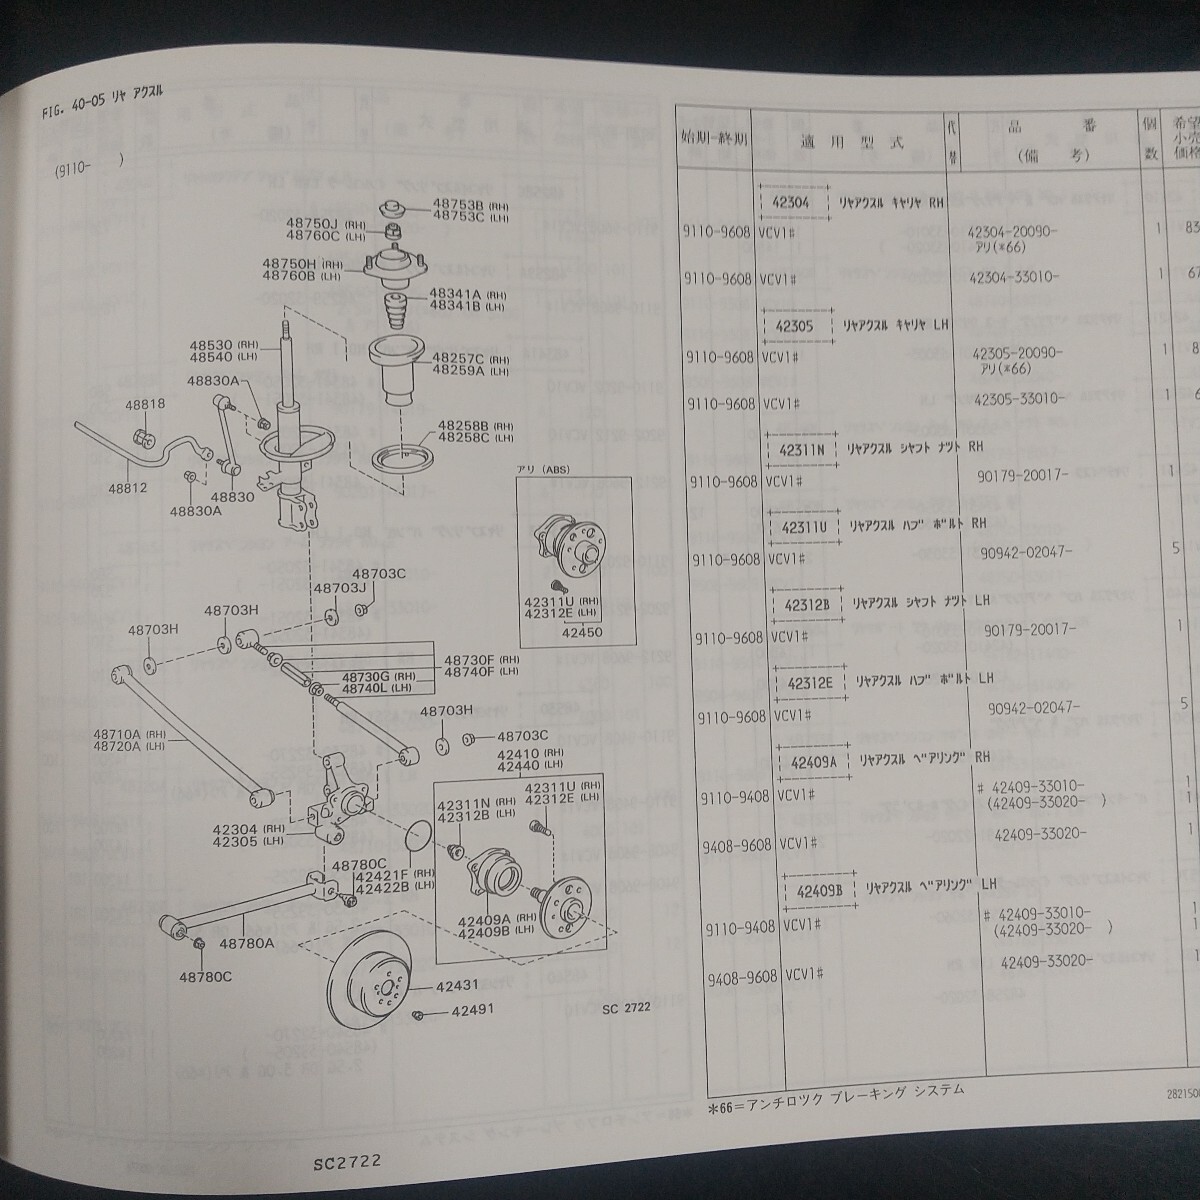 FIG. 40-05 リヤ アクスル
(9110-        )
48753B (RH)
48753C (LH)
48750J (RH)
48760C (LH)
48750H (RH)
48760B (LH)
48341A (RH)
48341B (LH)
48530 (RH)
48540 (LH)
48257C (RH)
48259A (LH)
48830A
48818
48258B (RH)
48258C (LH)
48812
48830
48830A
アリ (ABS)
42311U (RH)
42312E (LH)
42450
48703C
48703J
48703H
48703H
48730F (RH)
48740F (LH)
48730G (RH)
48740L (LH)
48703H
48703C
48710A (RH)
48720A (LH)
42410 (RH)
42440 (LH)
42311U (RH)
42312E (LH)
42311N (RH)
42312B (LH)
42304 (RH)
42305 (LH)
48780C
42421F (RH)
42422B (LH)
42409A (RH)
42409B (LH)
48780A
48780C
42431
42491
SC 2722
始期-終期 適用型式 代替 品番 (備考) 個数 希望小売価格
42304 リヤアクスル キヤリヤ RH
9110-9608 VCV1# 42304-20090- 1 83
アリ(*66)
9110-9608 VCV1# 42304-33010- 1 67
42305 リヤアクスル キヤリヤ LH
9110-9608 VCV1# 42305-20090- 1 8
アリ(*66)
9110-9608 VCV1# 42305-33010- 1 6
42311N リヤアクスル シヤフト ナツト RH
9110-9608 VCV1# 90179-20017- 1
42311U リヤアクスル ハブ ボルト RH
9110-9608 VCV1# 90942-02047- 5
42312B リヤアクスル シヤフト ナツト LH
9110-9608 VCV1# 90179-20017- 1
42312E リヤアクスル ハブ ボルト LH
9110-9608 VCV1# 90942-02047- 5
42409A リヤアクスル ベアリング RH
9110-9408 VCV1# # 42409-33010- 1
(42409-33020-  ) 1
9408-9608 VCV1# 42409-33020- 1
42409B リヤアクスル ベアリング LH
9110-9408 VCV1# # 42409-33010- 1
(42409-33020-  ) 1
9408-9608 VCV1# 42409-33020- 1
*66=アンチロツク ブレーキング システム
SC2722